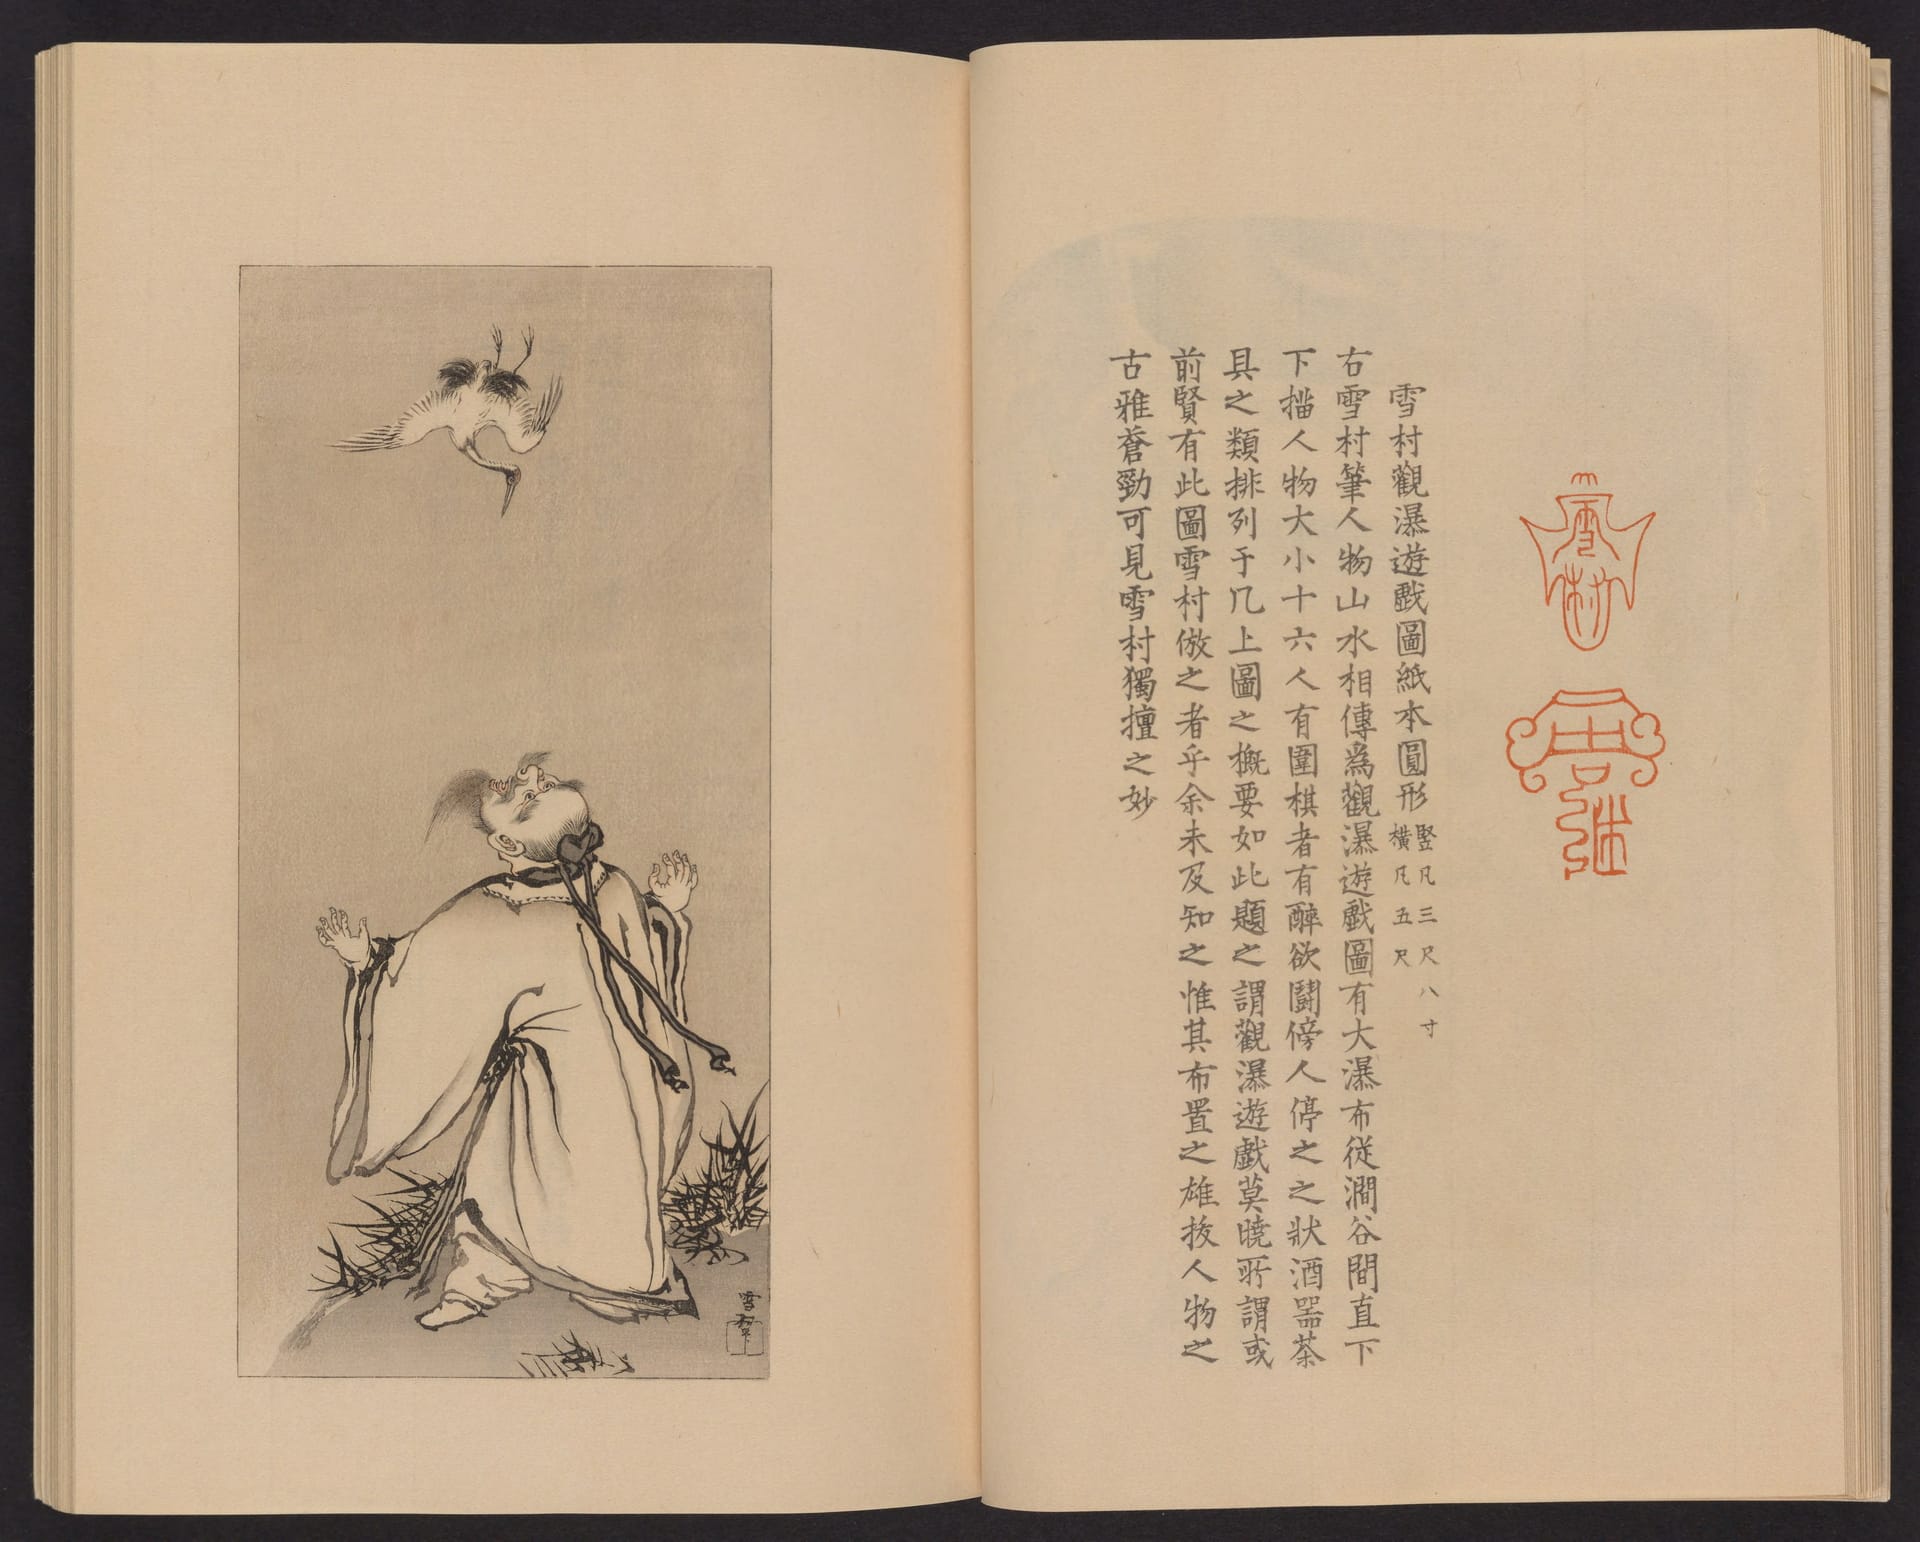 雪村
周継
雪村觀瀑遊戲圖紙本圓形 竪凡三尺八寸 橫凡五尺
右雪村筆人物山水相傳為觀瀑遊戲圖有大瀑布従澗谷間直下
下描人物大小十六人有圍棋者有醉欲鬪傍人停之之狀酒器茶
具之類排列于几上圖之概要如此題之謂觀瀑遊戲莫曉所謂或
前賢有此圖雪村倣之者乎余未及知之惟其布置之雄抜人物之
古雅蒼勁可見雪村獨擅之妙
雪村筆